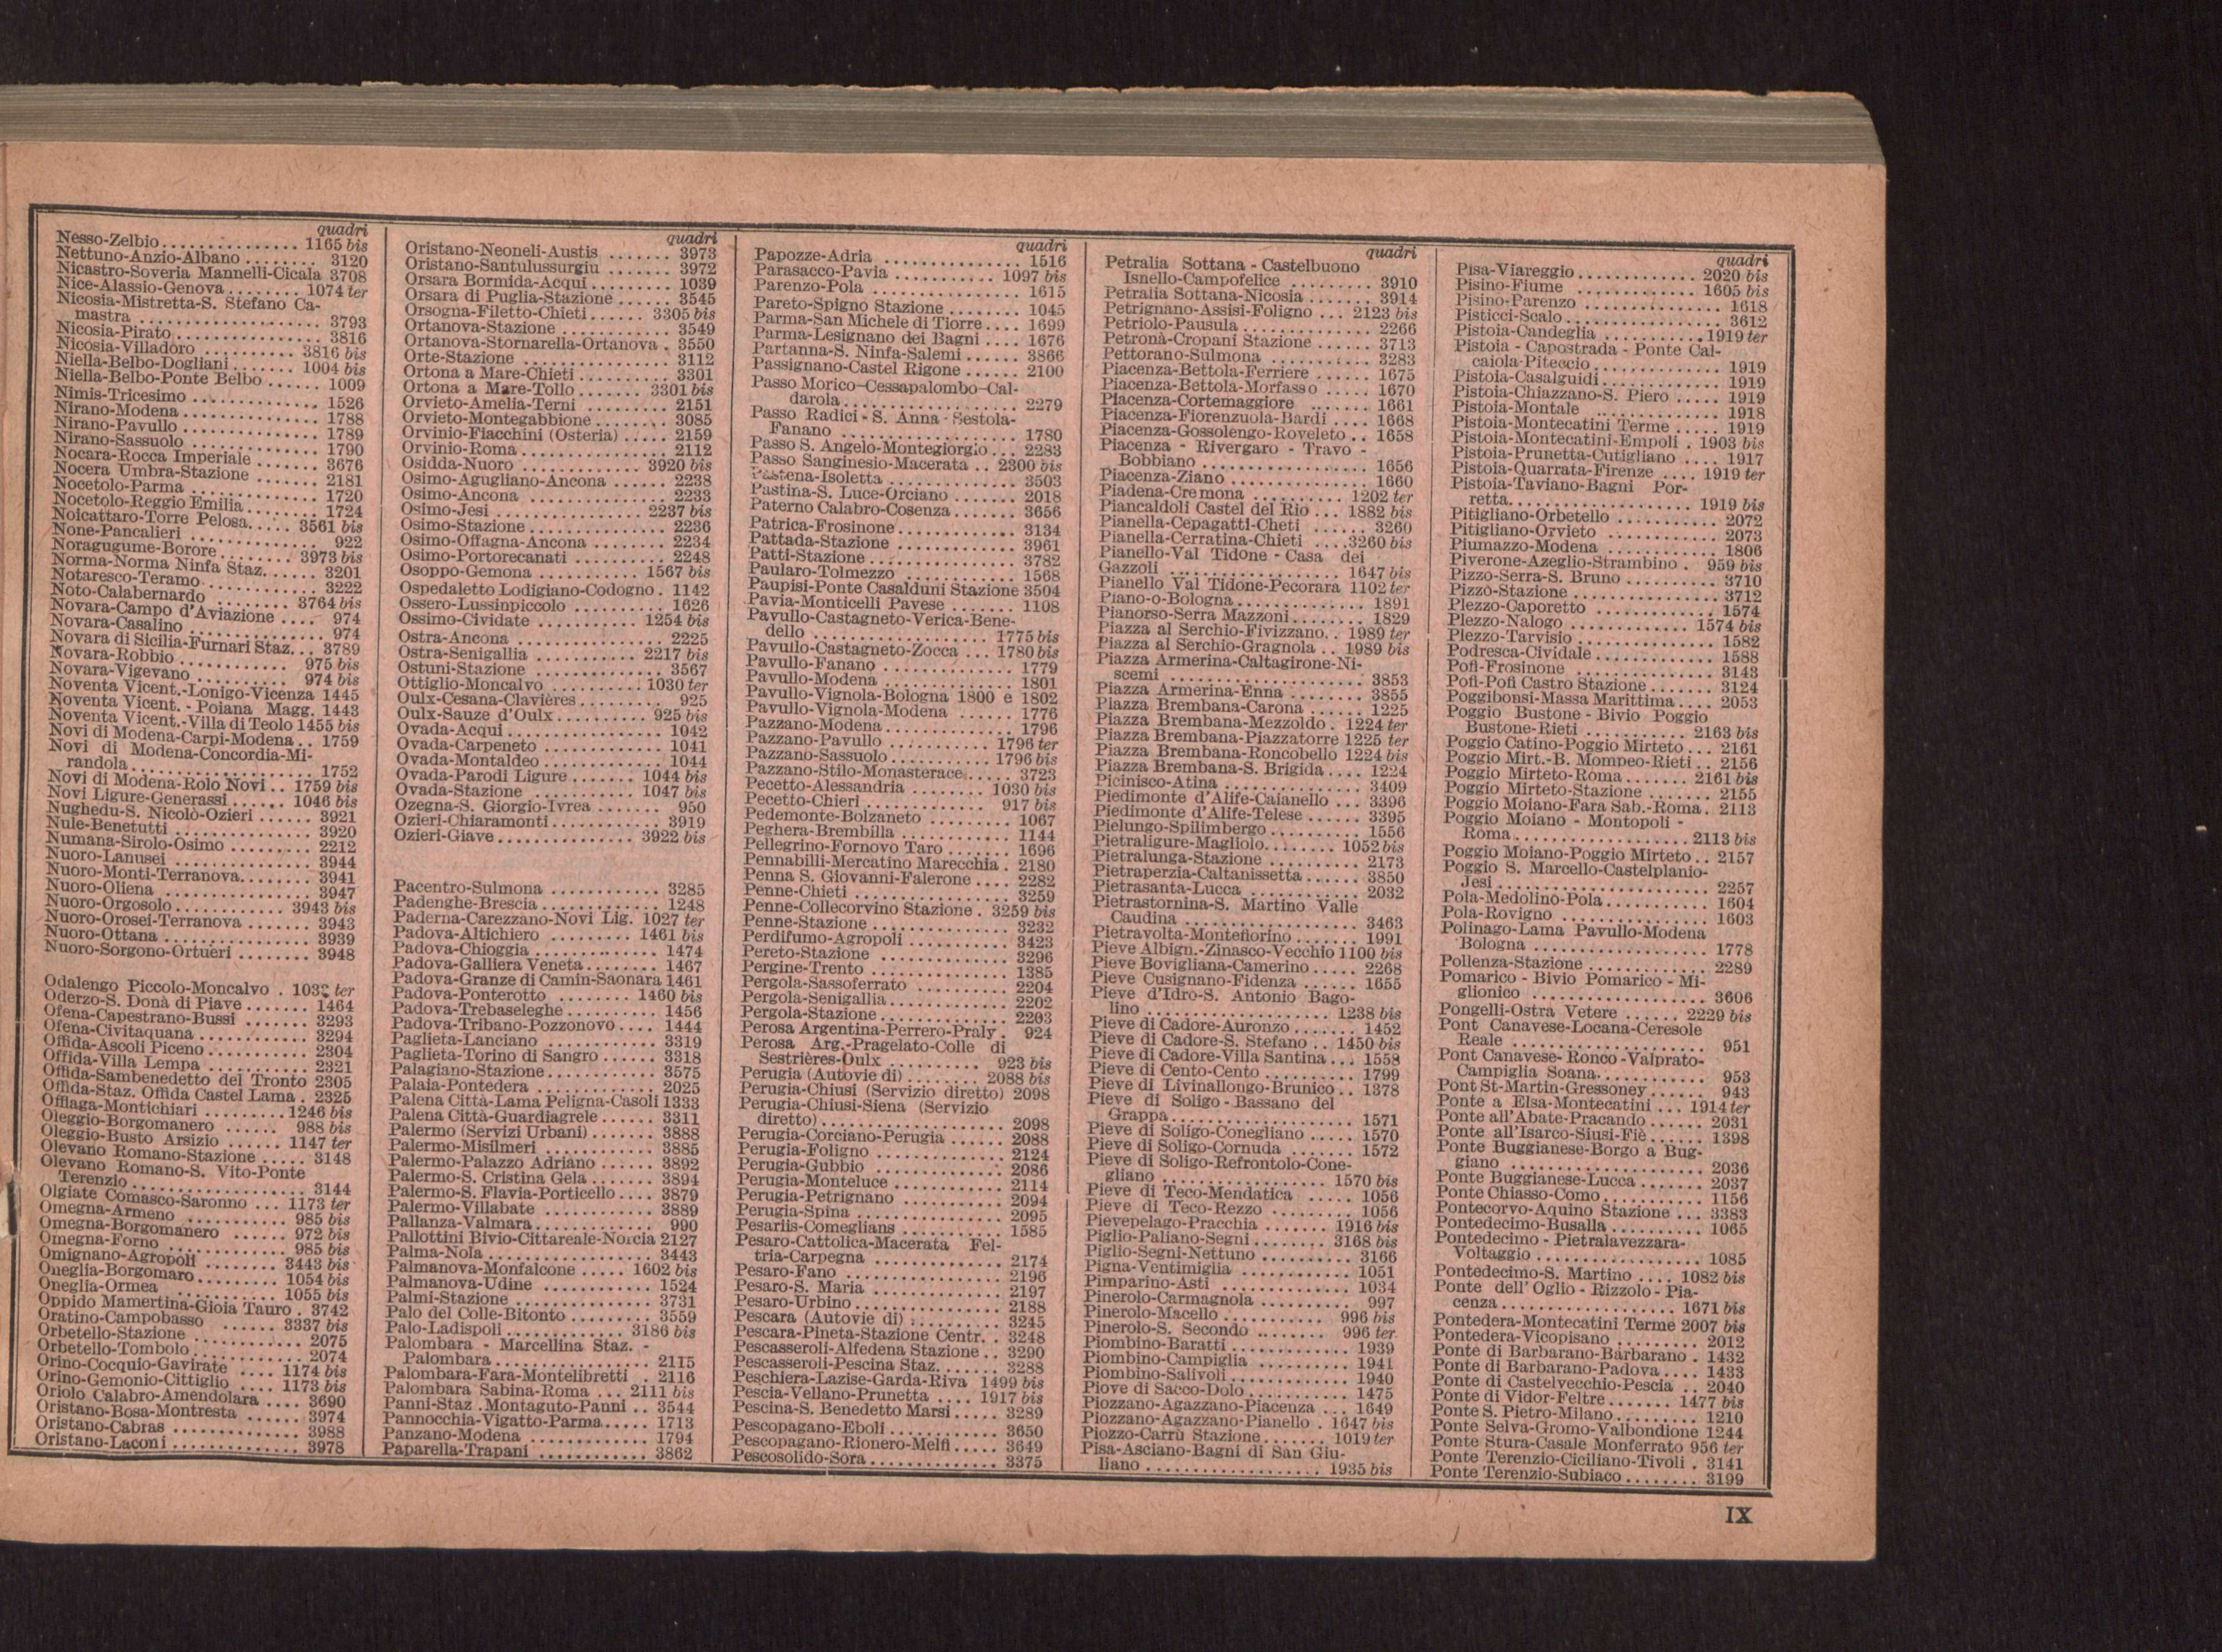 quadri
Nesso-Zelbio ............... 1165 bis
Nettuno-Anzio-Albano ........ 3120
Nicastro-Soveria Mannelli-Cicala 3708
Nice-Alassio-Genova ......... 1074 ter
Nicosia-Mistretta-S. Stefano Ca-
mastra .................... 3793
Nicosia-Pirato ................ 3816
Nicosia-Villadoro .......... 3816 bis
Niella-Belbo-Dogliani ....... 1004 bis
Niella-Belbo-Ponte Belbo ...... 1009
Nimis-Tricesimo .............. 1526
Nirano-Modena ............... 1788
Nirano-Pavullo ............... 1789
Nirano-Sassuolo .............. 1790
Nocara-Rocca Imperiale ....... 3676
Nocera Umbra-Stazione ....... 2181
Nocetolo-Parma .............. 1720
Nocetolo-Reggio Emilia ........ 1724
Noicattaro-Torre Pelosa ..... 3561 bis
None-Pancalieri .............. 922
Noragugume-Borore ........ 3973 bis
Norma-Norma Ninfa Staz. ..... 3201
Notaresco-Teramo ............ 3222
Noto-Calabernardo ........ 3764 bis
Novara-Campo d'Aviazione .... 974
Novara-Casalino .............. 974
Novara di Sicilia-Furnari Staz. .. 3789
Novara-Robbio ............ 975 bis
Novara-Vigevano .......... 974 bis
Noventa Vicent.-Lonigo-Vicenza 1445
Noventa Vicent. - Poiana Magg. 1443
Noventa Vicent.-Villa di Teolo 1455 bis
Novi di Modena-Carpi-Modena .. 1759
Novi di Modena-Concordia-Mi-
randola .................... 1752
Novi di Modena-Rolo Novi .. 1759 bis
Novi Ligure-Generassi ...... 1046 bis
Nughedu-S. Nicolò-Ozieri ...... 3921
Nule-Benetutti ............... 3920
Numana-Sirolo-Osimo ......... 2212
Nuoro-Lanusei ............... 3944
Nuoro-Monti-Terranova ........ 3941
Nuoro-Oliena ................ 3947
Nuoro-Orgosolo ............ 3943 bis
Nuoro-Orosei-Terranova ....... 3943
Nuoro-Ottana ................ 3939
Nuoro-Sorgono-Ortueri ........ 3948
Odalengo Piccolo-Moncalvo . ter
Oderzo-S. Donà di Piave ....... 1464
Ofena-Capestrano-Bussi ....... 3293
Ofena-Civitaquana ............ 3294
Offida-Ascoli Piceno .......... 2304
Offida-Villa Lempa ........... 2321
Offida-Sambenedetto del Tronto 2305
Offida-Staz. Offida Castel Lama . 2325
Offlaga-Montichiari ......... 1246 bis
Oleggio-Borgomanero ...... 988 bis
Oleggio-Busto Arsizio ...... 1147 ter
Olevano Romano-Stazione ..... 3148
Olevano Romano-S. Vito-Ponte
Terenzio .................... 3144
Olgiate Comasco-Saronno ... 1173 ter
Omegna-Armeno ........... 985 bis
Omegna-Borgomanero ...... 972 bis
Omegna-Forno ............. 985 bis
Omignano-Agropoli ........ 3443 bis
Oneglia-Borgomaro ......... 1054 bis
Oneglia-Ormea ............ 1055 bis
Oppido Mamertina-Gioia Tauro . 3742
Oratino-Campobasso ...... 3337 bis
Orbetello-Stazione ............ 2075
Orbetello-Tombolo ............ 2074
Orino-Cocquio-Gavirate .... 1174 bis
Orino-Gemonio-Cittiglio .... 1173 bis
Oriolo Calabro-Amendolara .... 3690
Oristano-Bosa-Montresta ...... 3974
Oristano-Cabras .............. 3988
Oristano-Laconi .............. 3978
quadri
Oristano-Neoneli-Austis ....... 3973
Oristano-Santulussurgiu ....... 3972
Orsara Bormida-Acqui ......... 1039
Orsara di Puglia-Stazione ...... 3545
Orsogna-Filetto-Chieti ...... 3305 bis
Ortanova-Stazione ............ 3549
Ortanova-Stornarella-Ortanova . 3550
Orte-Stazione ................ 3112
Ortona a Mare-Chieti .......... 3301
Ortona a Mare-Tollo ....... 3301 bis
Orvieto-Amelia-Terni ......... 2151
Orvieto-Montegabbione ........ 3085
Orvinio-Fiacchini (Osteria) ..... 2159
Orvinio-Roma ................ 2112
Osidda-Nuoro ............. 3920 bis
Osimo-Agugliano-Ancona ...... 2238
Osimo-Ancona ............... 2233
Osimo-Jesi ................ 2237 bis
Osimo-Stazione ............... 2236
Osimo-Offagna-Ancona ........ 2234
Osimo-Portorecanati .......... 2248
Osoppo-Gemona ........... 1567 bis
Ospedaletto Lodigiano-Codogno . 1142
Ossero-Lussinpiccolo .......... 1626
Ossimo-Cividate ........... 1254 bis
Ostra-Ancona ................ 2225
Ostra-Senigallia ........... 2217 bis
Ostuni-Stazione .............. 3567
Ottiglio-Moncalvo .......... 1030 ter
Oulx-Cesana-Clavières ......... 925
Oulx-Sauze d'Oulx .......... 925 bis
Ovada-Acqui ................ 1042
Ovada-Carpeneto ............. 1041
Ovada-Montaldeo ............. 1044
Ovada-Parodi Ligure ....... 1044 bis
Ovada-Stazione ........... 1047 bis
Ozegna-S. Giorgio-Ivrea ....... 950
Ozieri-Chiaramonti ............ 3919
Ozieri-Giave ............... 3922 bis
Pacentro-Sulmona ............ 3285
Padenghe-Brescia ............. 1248
Paderna-Carezzano-Novi Lig. 1027 ter
Padova-Altichiero ......... 1461 bis
Padova-Chioggia .............. 1474
Padova-Galliera Veneta ........ 1467
Padova-Granze di Camin-Saonara 1461
Padova-Ponterotto ........ 1460 bis
Padova-Trebaseleghe .......... 1456
Padova-Tribano-Pozzonovo .... 1444
Paglieta-Lanciano ............ 3319
Paglieta-Torino di Sangro ...... 3318
Palagiano-Stazione ............ 3575
Palaia-Pontedera ............. 2025
Palena Città-Lama Peligna-Casoli 1333
Palena Città-Guardiagrele ...... 3311
Palermo (Servizi Urbani) ....... 3888
Palermo-Misilmeri ............ 3885
Palermo-Palazzo Adriano ...... 3892
Palermo-S. Cristina Gela ....... 3894
Palermo-S. Flavia-Porticello .... 3879
Palermo-Villabate ............ 3889
Pallanza-Valmara ............. 990
Pallottini Bivio-Cittareale-Norcia 2127
Palma-Nola .................. 3443
Palmanova-Monfalcone ..... 1602 bis
Palmanova-Udine ............. 1524
Palmi-Stazione ............... 3731
Palo del Colle-Bitonto ......... 3559
Palo-Ladispoli ............. 3186 bis
Palombara - Marcellina Staz. -
Palombara .................. 2115
Palombara-Fara-Montelibretti . 2116
Palombara Sabina-Roma ... 2111 bis
Panni-Staz. Montaguto-Panni .. 3544
Pannocchia-Vigatto-Parma ..... 1713
Panzano-Modena ............. 1794
Paparella-Trapani ............ 3862
quadri
Papozze-Adria ............... 1516
Parasacco-Pavia ........... 1097 bis
Parenzo-Pola ................ 1615
Pareto-Spigno Stazione ........ 1045
Parma-San Michele di Tiorre .... 1699
Parma-Lesignano dei Bagni .... 1676
Partanna-S. Ninfa-Salemi ...... 3866
Passignano-Castel Rigone ...... 2100
Passo Morico-Cessapalombo-Cal-
darola .................... 2279
Passo Radici - S. Anna - Sestola-
Fanano .................... 1780
Passo S. Angelo-Montegiorgio ... 2283
Passo Sanginesio-Macerata .. 2300 bis
Pastena-Isoletta .............. 3503
Pastina-S. Luce-Orciano ....... 2018
Paterno Calabro-Cosenza ....... 3656
Patrica-Frosinone ............. 3134
Pattada-Stazione ............. 3961
Patti-Stazione ................ 3782
Paularo-Tolmezzo ............ 1568
Paupisi-Ponte Casalduni Stazione 3504
Pavia-Monticelli Pavese ....... 1108
Pavullo-Castagneto-Verica-Bene-
dello .................... 1775 bis
Pavullo-Castagneto-Zocca ... 1780 bis
Pavullo-Fanano .............. 1779
Pavullo-Modena .............. 1801
Pavullo-Vignola-Bologna 1800 e 1802
Pavullo-Vignola-Modena ...... 1776
Pazzano-Modena ............. 1796
Pazzano-Pavullo .......... 1796 ter
Pazzano-Sassuolo .......... 1796 bis
Pazzano-Stilo-Monasterace ..... 3723
Pecetto-Alessandria ........ 1030 bis
Pecetto-Chieri ............. 917 bis
Pedemonte-Bolzaneto ......... 1067
Peghera-Brembilla ............ 1144
Pellegrino-Fornovo Taro ....... 1696
Pennabilli-Mercatino Marecchia . 2180
Penna S. Giovanni-Falerone .... 2282
Penne-Chieti ................ 3259
Penne-Collecorvino Stazione . 3259 bis
Penne-Stazione ............... 3232
Perdifumo-Agropoli ........... 3423
Pereto-Stazione .............. 3296
Pergine-Trento ............... 1385
Pergola-Sassoferrato .......... 2204
Pergola-Senigallia ............ 2202
Pergola-Stazione .............. 2203
Perosa Argentina-Perrero-Praly . 924
Perosa Arg.-Pragelato-Colle di
Sestrières-Oulx ............ 923 bis
Perugia (Autovie di) ........ 2088 bis
Perugia-Chiusi (Servizio diretto) 2098
Perugia-Chiusi-Siena (Servizio
diretto) .................... 2098
Perugia-Corciano-Perugia ...... 2088
Perugia-Foligno .............. 2124
Perugia-Gubbio .............. 2086
Perugia-Monteluce ............ 2114
Perugia-Petrignano ........... 2094
Perugia-Spina ................ 2095
Pesariis-Comeglians ........... 1585
Pesaro-Cattolica-Macerata Fel-
tria-Carpegna .............. 2174
Pesaro-Fano ................. 2196
Pesaro-S. Maria .............. 2197
Pesaro-Urbino ................ 2188
Pescara (Autovie di) .......... 3245
Pescara-Pineta-Stazione Centr. . 3248
Pescasseroli-Alfedena Stazione .. 3290
Pescasseroli-Pescina Staz. ...... 3288
Peschiera-Lazise-Garda-Riva 1499 bis
Pescia-Vellano-Prunetta .... 1917 bis
Pescina-S. Benedetto Marsi .... 3289
Pescopagano-Eboli ............ 3650
Pescopagano-Rionero-Melfi ..... 3649
Pescosolido-Sora .............. 3375
quadri
Petralia Sottana - Castelbuono
Isnello-Campofelice ......... 3910
Petralia Sottana-Nicosia ....... 3914
Petrignano-Assisi-Foligno ... 2123 bis
Petriolo-Pausula .............. 2266
Petronà-Cropani Stazione ...... 3713
Pettorano-Sulmona ........... 3283
Piacenza-Bettola-Ferriere ...... 1675
Piacenza-Bettola-Morfasso ..... 1670
Piacenza-Cortemaggiore ....... 1661
Piacenza-Fiorenzuola-Bardi .... 1668
Piacenza-Gossolengo-Roveleto .. 1658
Piacenza - Rivergaro - Travo -
Bobbiano .................. 1656
Piacenza-Ziano ............... 1660
Piadena-Cremona .......... 1202 ter
Piancaldoli Castel del Rio ... 1882 bis
Pianella-Cepagatti-Cheti ...... 3260
Pianella-Cerratina-Chieti .... 3260 bis
Pianello-Val Tidone - Casa dei
Gazzoli .................. 1647 bis
Pianello Val Tidone-Pecorara 1102 ter
Piano-o-Bologna .............. 1891
Pianorso-Serra Mazzoni ........ 1829
Piazza al Serchio-Fivizzano .. 1989 ter
Piazza al Serchio-Gragnola .. 1989 bis
Piazza Armerina-Caltagirone-Ni-
scemi .................... 3853
Piazza Armerina-Enna ........ 3855
Piazza Brembana-Carona ...... 1225
Piazza Brembana-Mezzoldo . 1224 ter
Piazza Brembana-Piazzatorre 1225 ter
Piazza Brembana-Roncobello 1224 bis
Piazza Brembana-S. Brigida .... 1224
Picinisco-Atina ............... 3409
Piedimonte d'Alife-Caianello ... 3396
Piedimonte d'Alife-Telese ...... 3395
Pielungo-Spilimbergo .......... 1556
Pietraligure-Magliolo ........ 1052 bis
Pietralunga-Stazione .......... 2173
Pietraperzia-Caltanissetta ...... 3850
Pietrasanta-Lucca ............ 2032
Pietrastornina-S. Martino Valle
Caudina .................. 3463
Pietravolta-Montefiorino ....... 1991
Pieve Albign.-Zinasco-Vecchio 1100 bis
Pieve Bovigliana-Camerino ..... 2268
Pieve Cusignano-Fidenza ...... 1655
Pieve d'Idro-S. Antonio Bago-
lino .................... 1238 bis
Pieve di Cadore-Auronzo ....... 1452
Pieve di Cadore-S. Stefano .. 1450 bis
Pieve di Cadore-Villa Santina ... 1558
Pieve di Cento-Cento .......... 1799
Pieve di Livinallongo-Brunico .. 1378
Pieve di Soligo - Bassano del
Grappa .................... 1571
Pieve di Soligo-Conegliano ..... 1570
Pieve di Soligo-Cornuda ....... 1572
Pieve di Soligo-Refrontolo-Cone-
gliano .................. 1570 bis
Pieve di Teco-Mendatica ..... 1056
Pieve di Teco-Rezzo .......... 1056
Pievepelago-Pracchia ....... 1916 bis
Piglio-Paliano-Segni ........ 3168 bis
Piglio-Segni-Nettuno .......... 3166
Pigna-Ventimiglia ............ 1051
Pimparino-Asti .............. 1034
Pinerolo-Carmagnola .......... 997
Pinerolo-Macello ........... 996 bis
Pinerolo-S. Secondo ........ 996 ter
Piombino-Baratti ............. 1939
Piombino-Campiglia .......... 1941
Piombino-Salivoli ............. 1940
Piove di Sacco-Dolo ........... 1475
Piozzano-Agazzano-Piacenza ... 1649
Piozzano-Agazzano-Pianello . 1647 bis
Piozzo-Carrù Stazione ....... 1019 ter
Pisa-Asciano-Bagni di San Giu-
liano .................... 1935 bis
quadri
Pisa-Viareggio ............. 2020 bis
Pisino-Fiume ............. 1605 bis
Pisino-Parenzo ............... 1618
Pisticci-Scalo ................. 3612
Pistoia-Candeglia ............ 1919 ter
Pistoia - Capostrada - Ponte Cal-
caiola-Piteccio .............. 1919
Pistoia-Casalguidi ............. 1919
Pistoia-Chiazzano-S. Piero ..... 1919
Pistoia-Montale .............. 1918
Pistoia-Montecatini Terme ..... 1919
Pistoia-Montecatini-Empoli . 1903 bis
Pistoia-Prunetta-Cutigliano .... 1917
Pistoia-Quarrata-Firenze .... 1919 ter
Pistoia-Taviano-Bagni Por-
retta .................... 1919 bis
Pitigliano-Orbetello ........... 2072
Pitigliano-Orvieto ............ 2073
Piumazzo-Modena ............ 1806
Piverone-Azeglio-Strambino . 959 bis
Pizzo-Serra-S. Bruno .......... 3710
Pizzo-Stazione ............... 3712
Plezzo-Caporetto ............. 1574
Plezzo-Nalogo ............. 1574 bis
Plezzo-Tarvisio ............... 1582
Podresca-Cividale ............. 1588
Pofi-Frosinone ............... 3143
Pofi-Pofi Castro Stazione ....... 3124
Poggibonsi-Massa Marittima .... 2053
Poggio Bustone - Bivio Poggio
Bustone-Rieti ............ 2163 bis
Poggio Catino-Poggio Mirteto ... 2161
Poggio Mirt.-B. Mompeo-Rieti .. 2156
Poggio Mirteto-Roma ....... 2161 bis
Poggio Mirteto-Stazione ....... 2155
Poggio Moiano-Fara Sab.-Roma . 2113
Poggio Moiano - Montopoli -
Roma .................... 2113 bis
Poggio Moiano-Poggio Mirteto .. 2157
Poggio S. Marcello-Castelplanio-
Jesi ...................... 2257
Pola-Medolino-Pola ........... 1604
Pola-Rovigno ................ 1603
Polinago-Lama Pavullo-Modena
Bologna ................... 1778
Pollenza-Stazione ............. 2289
Pomarico - Bivio Pomarico - Mi-
glionico ................... 3606
Pongelli-Ostra Vetere ...... 2229 bis
Pont Canavese-Locana-Ceresole
Reale .................... 951
Pont Canavese- Ronco -Valprato-
Campiglia Soana ........... 953
Pont St-Martin-Gressoney ...... 943
Ponte a Elsa-Montecatini ... 1914 ter
Ponte all'Abate-Pracando ...... 2031
Ponte all'Isarco-Siusi-Fiè ...... 1398
Ponte Buggianese-Borgo a Bug-
giano .................... 2036
Ponte Buggianese-Lucca ....... 2037
Ponte Chiasso-Como .......... 1156
Pontecorvo-Aquino Stazione ... 3383
Pontedecimo-Busalla .......... 1065
Pontedecimo - Pietralavezzara-
Voltaggio .................. 1085
Pontedecimo-S. Martino .... 1082 bis
Ponte dell' Oglio - Rizzolo - Pia-
cenza .................... 1671 bis
Pontedera-Montecatini Terme 2007 bis
Pontedera-Vicopisano ......... 2012
Ponte di Barbarano-Barbarano . 1432
Ponte di Barbarano-Padova .... 1433
Ponte di Castelvecchio-Pescia .. 2040
Ponte di Vidor-Feltre ....... 1477 bis
Ponte S. Pietro-Milano ......... 1210
Ponte Selva-Gromo-Valbondione 1244
Ponte Stura-Casale Monferrato 956 ter
Ponte Terenzio-Ciciliano-Tivoli . 3141
Ponte Terenzio-Subiaco ........ 3199
IX